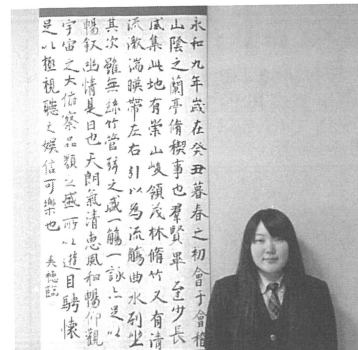 永和九年歳在癸丑暮春之初會于會稽
山陰之蘭亭脩禊事也羣賢畢至少長
咸集此地有崇山峻領茂林脩竹又有清
流激湍暎帶左右引以為流觴曲水列坐
其次雖無絲竹管弦之盛一觴一詠亦足以
暢叙幽情是日也天朗氣清恵風和暢仰觀
宇宙之大俯察品類之盛所以遊目騁懐
足以極視聽之娯信可樂也 美穂臨